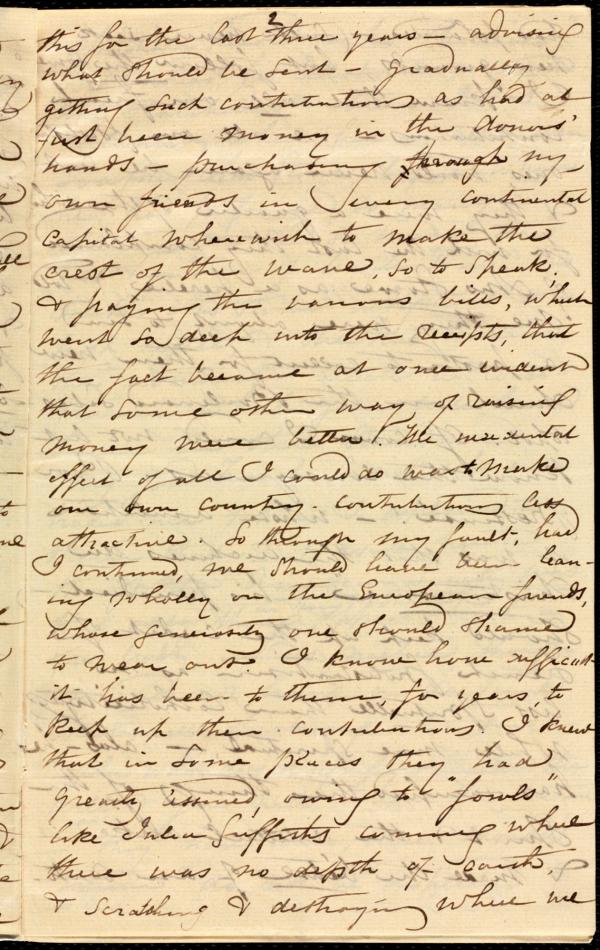 2
this for the last three years - advising
what should be sent - gradually
getting such contributions as had at
first been money in the donors'
hands - purchasing through my
own friends in every continental
Capital wherewith to make the
crest of the wave, so to speak,
& paying the various bills, which
went so deep into the receipts, that
the fact became at once evident
that some other way of raising
money were better. The incidental
effect of all I could do was to make
our own country-contributions less
attractive. So through my fault, had
I continued, we should have been lean-
ing wholly on the European friends,
whose generosity one should shame
to wear out. I know how difficult
it has been to them, for years, to
keep up their contributions. I knew
that in some places they had
greatly lessened, owing to "fowls"
like Julia Griffiths coming where
there was no depth of earth,
& scratching & destroying where we